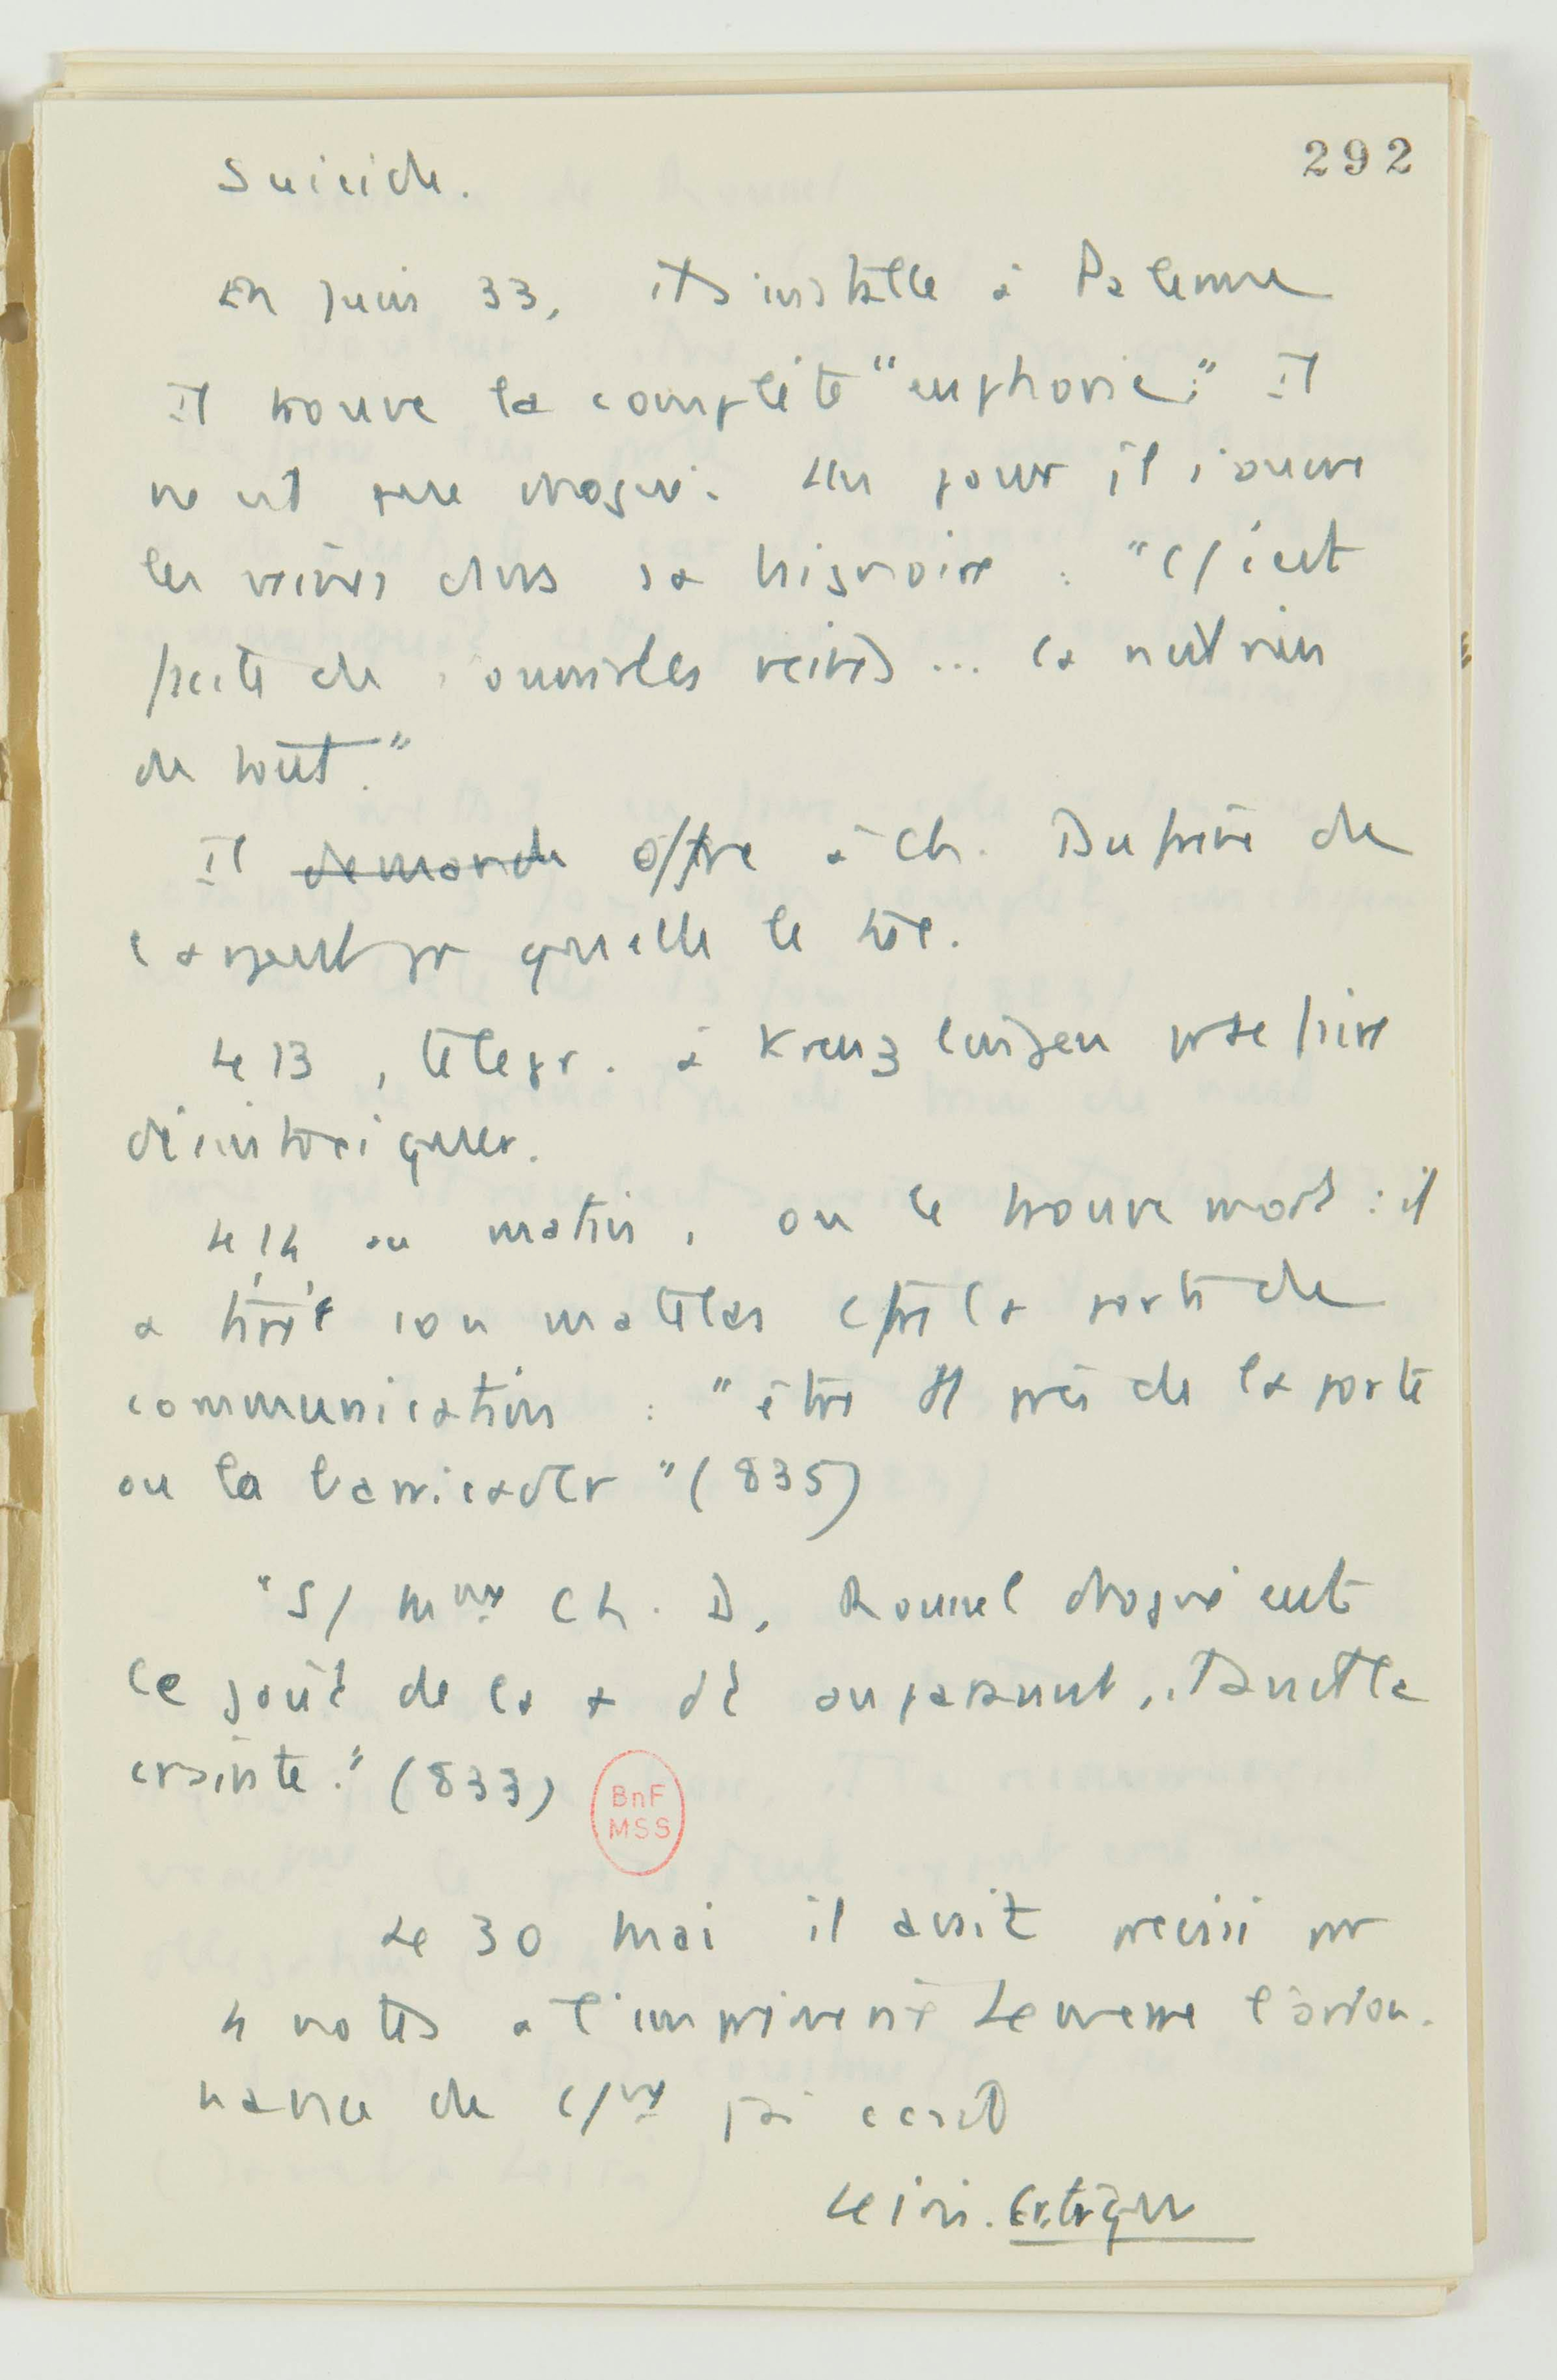 292
Suicide.
En juin 33, il s'installe à Palerme
Il trouve la complète "euphorie." Il
ne est que drogué. Un jour il s'ouvre
les veines dans sa baignoire : "c/ c'est
facile de s'ouvrir les veines ... ce n'est rien
du tout."
Il demande offre à Ch. Dufrène de
l'argent pr qu'elle le tue.
Le 13, télégr. à Kreuzlingen pr se faire
désintoxiquer.
Le 14 au matin, on le trouve mort : il
a tiré son matelas c/tre la porte de
communication : "être près de la porte
ou la barricader" (835)
"S/ Mme Ch. D. Roussel drogué eut
le goût de la + dt auparavant, il avait la
crainte." (833)
BnF
MSS
Le 30 mai il avait précisé pr
4 notes à l'imprimerie Lemerre l'ordon-
nance de c/mt j'ai écrit
Leiris. Critique